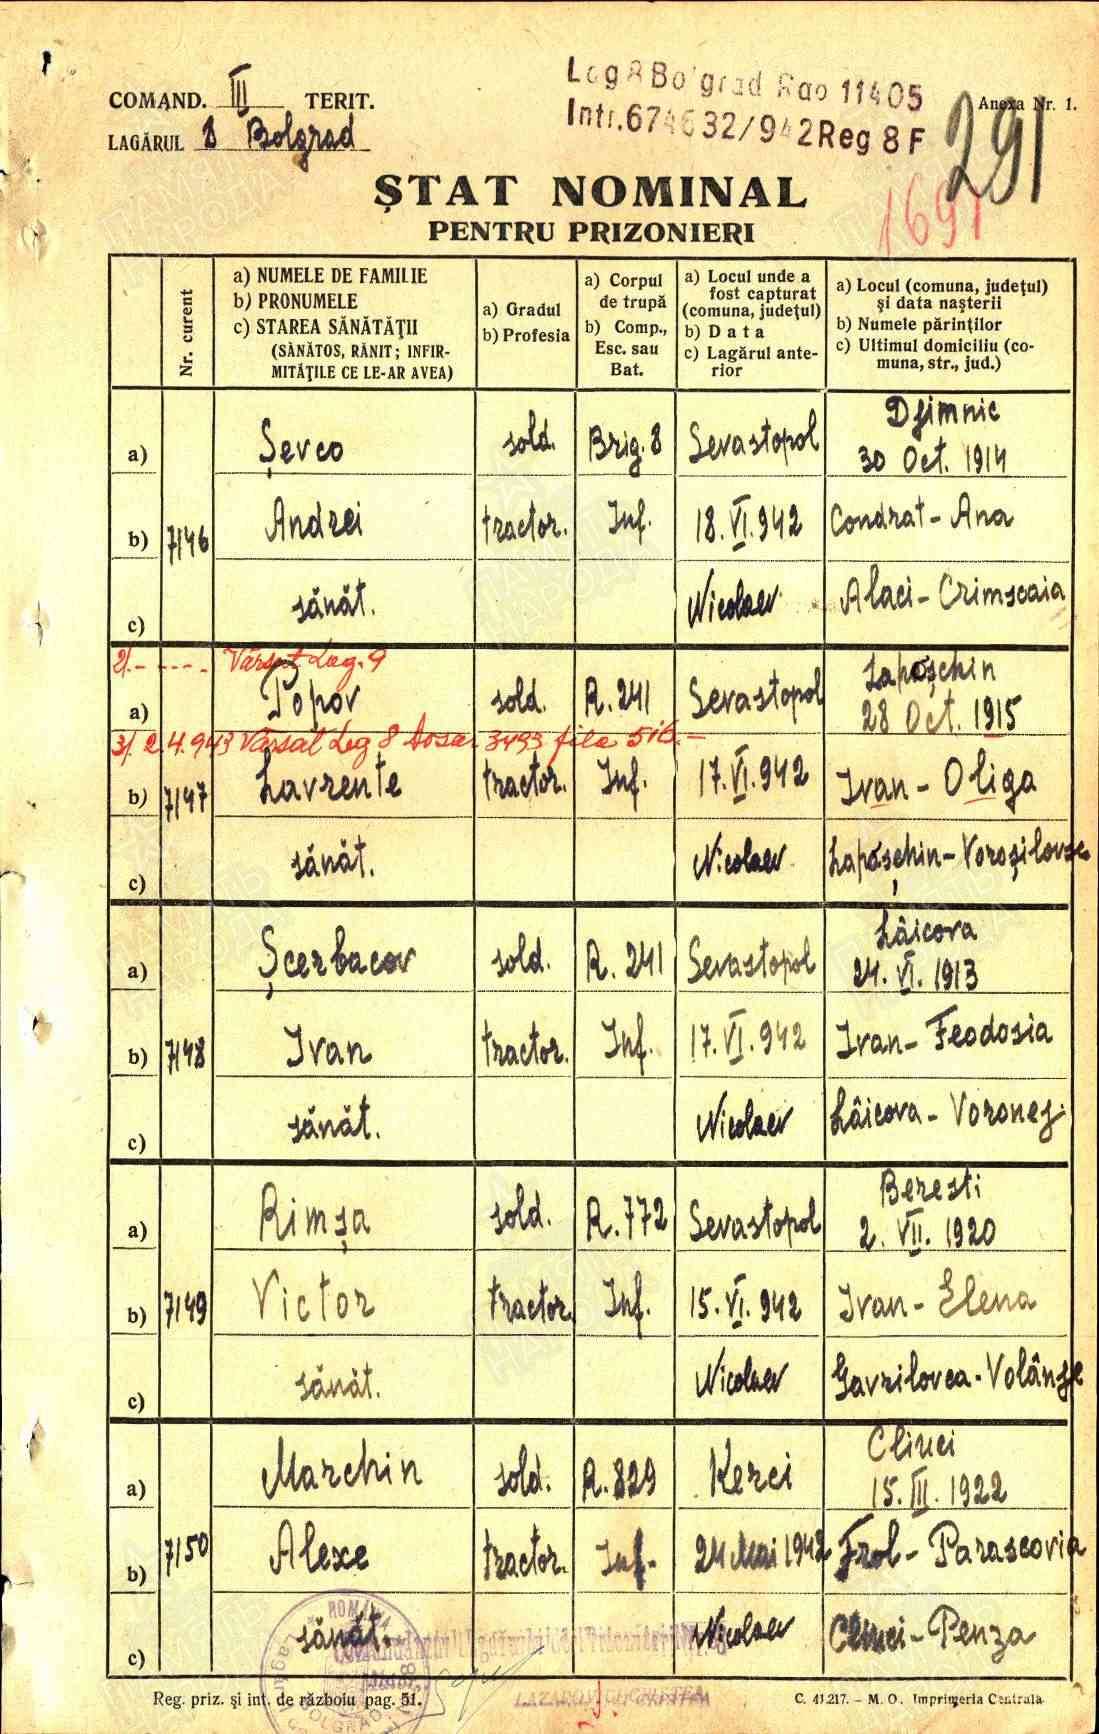 COMAND. III TERIT.
LAGĂRUL 8 Bolgrad
Lag 8 Bolgrad Rao 11405
Intr. 674632/942 Reg 8 F
Anexa Nr. 1.
291
1697
ȘTAT NOMINAL
PENTRU PRIZONIERI
Nr. curent
a) NUMELE DE FAMILIE
b) PRONUMELE
c) STAREA SĂNĂTĂȚII
(SĂNĂTOS, RĂNIT; INFIR-
MITĂȚILE CE LE-AR AVEA)
a) Gradul
b) Profesia
a) Corpul
de trupă
b) Comp.,
Esc. sau
Bat.
a) Locul unde a
fost capturat
(comuna, județul)
b) Data
c) Lagărul ante-
rior
a) Locul (comuna, județul)
și data nașterii
b) Numele părinților
c) Ultimul domiciliu (co-
muna, str., jud.)
Djimnic
a) Șevco sold. Brig. 8 Sevastopol 30 Oct. 1914
b) 7146 Andrei tractor. Inf. 18. VI. 942 Condrat - Ana
c) sănăt. Nicolaev Alaci - Crimscaia
2/. - - - - - Vărsat Lag. 9
Lapoșchin
a) Popov sold. R. 241 Sevastopol 28 Oct. 1915
3/. 2.4.943 Vărsat Lag 8 dosar 3493 fila 516. -
b) 7147 Lavrente tractor. Inf. 17. VI. 942 Ivan - Oliga
c) sănăt. Nicolaev Lapoșchin - Voroșilovsc
Lâicova
a) Șcerbacov sold. R. 241 Sevastopol 24. VI. 1913
b) 7148 Ivan tractor. Inf. 17. VI. 942 Ivan - Feodosia
c) sănăt. Nicolaev Lâicova - Voronej
Beresti
a) Rimșa sold. R. 772 Sevastopol 2. VII. 1920
b) 7149 Victor tractor. Inf. 15. VI. 942 Ivan - Elena
c) sănăt. Nicolaev Gavrilovca - Volânsc
Cliuci
a) Marchin sold. R. 829 Kerci 15. III. 1922
b) 7150 Alexe tractor. Inf. 24 Mai 1942 Frol - Parascovia
c) sănăt. Nicolaev Cliuci - Penza
ROMÂNIA
BOLGRAD
Reg. priz. și int. de războiu pag. 51.
C. 41.217. - M. O. Imprimeria Centrala